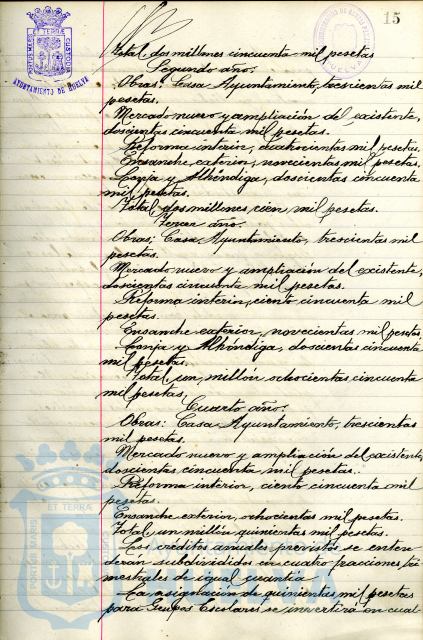 15
PORTUS MARIS ET TERRÆ CUSTODIA
AYUNTAMIENTO DE HUELVA
Total dos millones cincuenta mil pesetas
Segundo año:
Obras: Casa Ayuntamiento, trescientas mil
pesetas.
Mercado nuevo y ampliación del existente,
doscientas cincuenta mil pesetas.
Reforma interior, cuatrocientas mil pesetas.
Ensanche exterior, novecientas mil pesetas.
Lonja y Alhóndiga, doscientas cincuenta
mil pesetas.
Total, dos millones cien mil pesetas.
Tercer año.
Obras; Casa Ayuntamiento, trescientas mil
pesetas.
Mercado nuevo y ampliación del existente,
doscientas cincuenta mil pesetas.
Reforma interior, ciento cincuenta mil
pesetas.
Ensanche exterior, novecientas mil pesetas
Lonja y Alhóndiga, doscientas cincuenta
mil pesetas.
Total un millón ochocientas cincuenta
mil pesetas
Cuarto año:
Obras: Casa Ayuntamiento, trescientas
mil pesetas.
Mercado nuevo y ampliación del existente,
doscientas cincuenta mil pesetas.
Reforma interior, ciento cincuenta mil
pesetas.
Ensanche exterior, ochocientas mil pesetas.
Total un millón quinientas mil pesetas.
Los creditos anuales previstos se enten
deran subdivididos en cuatro fracciones tri
mestrales de igual cuantia
La asignación de quinientas mil pesetas
para Grupos Escolares se invertirá en cual